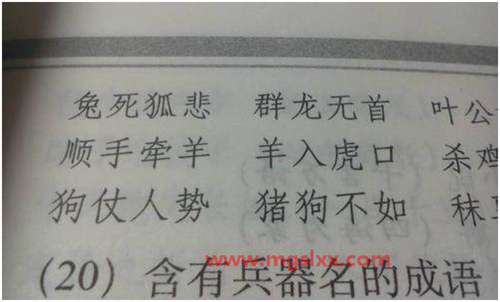 兔死狐悲 群龙无首 叶公
顺手牵羊 羊入虎口 杀鸡
狗仗人势 猪狗不如 秣
www.mgslxx.com
(20) 含有兵器名的成语